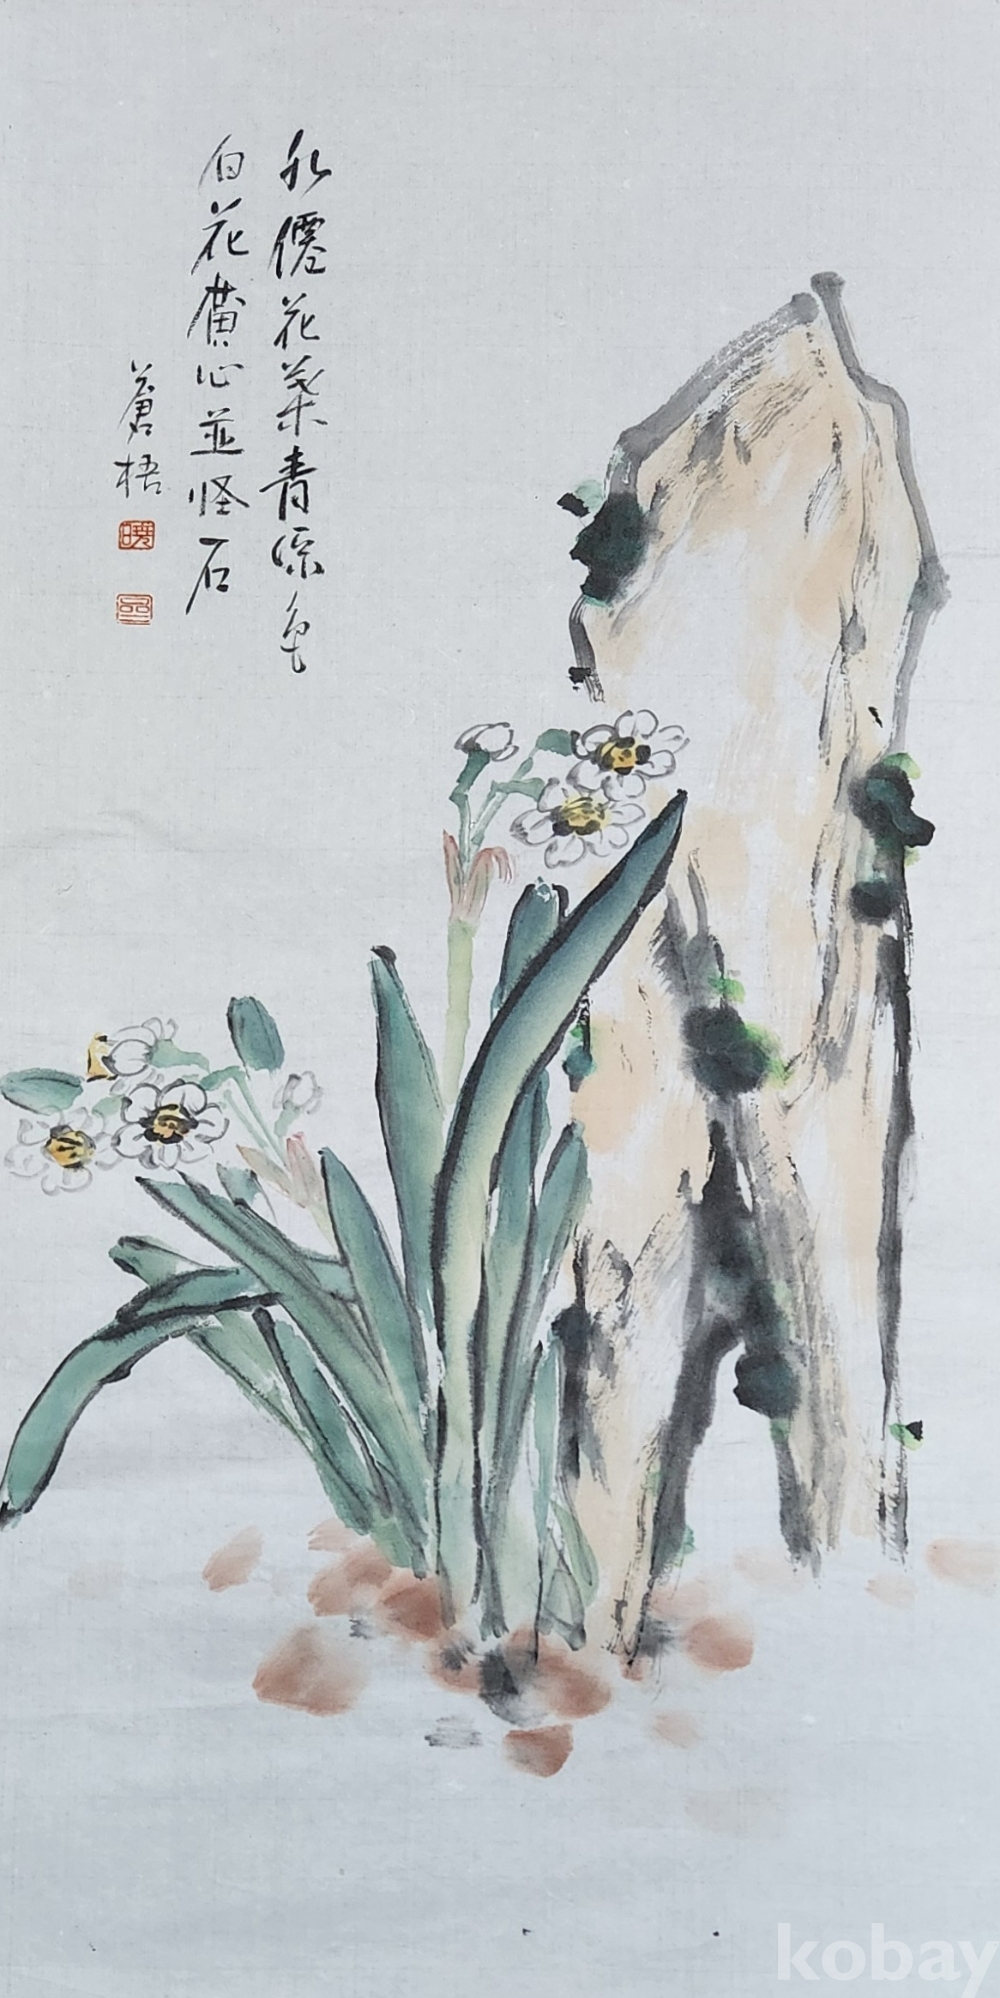 水僊花葉青深色
白花黄心並怪石
蒼梧
kobay